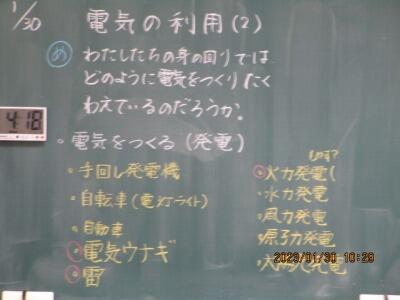 1/30
電気の利用(2)
め わたしたちの身の回りでは
どのように電気をつくりたく
わえているのだろうか。
4:18
・電気をつくる(発電)
・手回し発電機
・自転車(電灯ライト)
・自動車
・電気ウナギ
・雷
・火力発電(
・水力発電
・風力発電
・原子力発電
・太陽光発電
2023/01/30 10:29